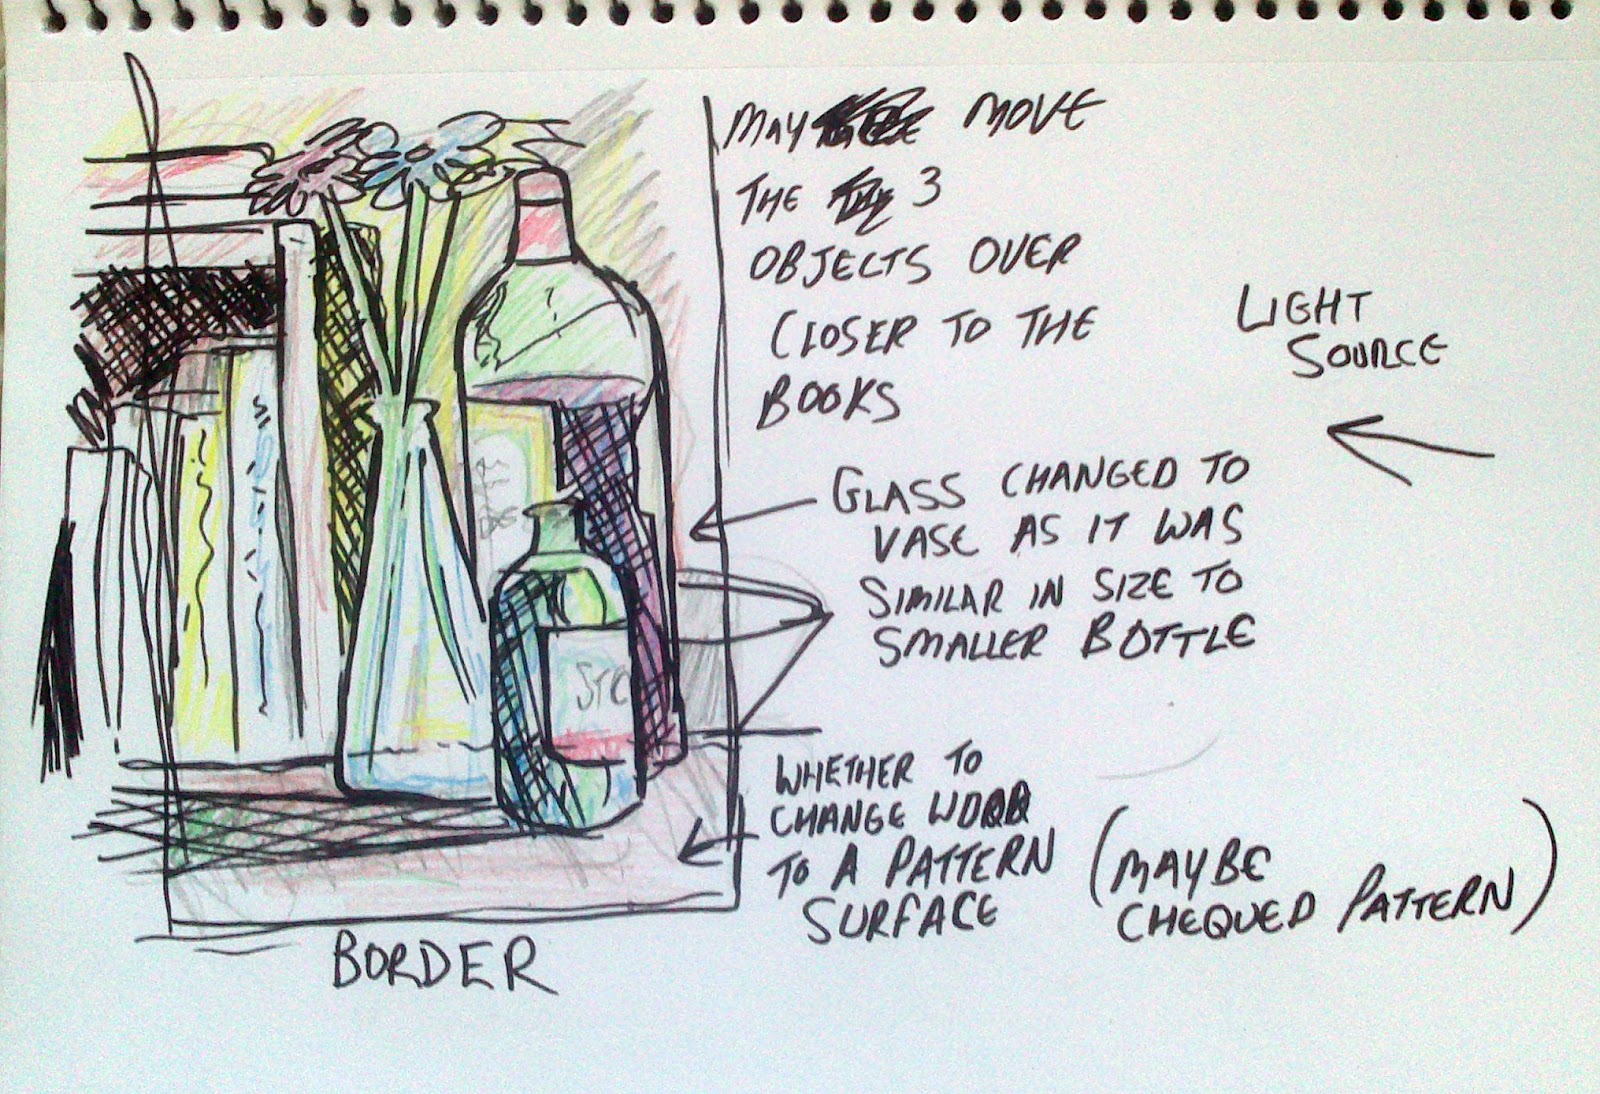 MAY MOVE
THE 3
OBJECTS OVER
CLOSER TO THE
BOOKS
LIGHT
SOURCE
GLASS CHANGED TO
VASE AS IT WAS
SIMILAR IN SIZE TO
SMALLER BOTTLE
STC
WHETHER TO
CHANGE WOOD
TO A PATTERN
SURFACE
(MAYBE
CHEQUED PATTERN)
BORDER